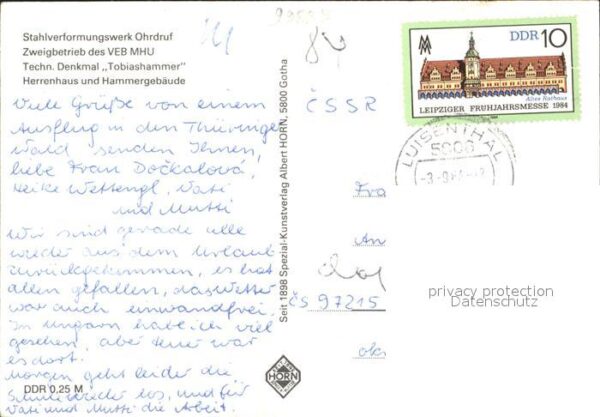 Stahlverformungswerk Ohrdruf
Zweigbetrieb des VEB MHU
Techn. Denkmal „Tobiashammer"
Herrenhaus und Hammergebäude
Viele Grüße von einem
Ausflug in den Thüringer
Wald senden Ihnen,
liebe Frau Dočkalová,
Heike Wettengl, Vati
und Mutti
Wir sind gerade alle
wieder aus dem Urlaub
zurückgekommen, es hat
allen gefallen, das Wetter
war auch einwandfrei.
In Ungarn habe ich viel
gesehen, aber teuer war
es dort.
Morgen geht leider die
Schule wieder los, und für
Vati und Mutti die Arbeit.
DDR 0,25 M
Seit 1898 Spezial-Kunstverlag Albert HORN, 5800 Gotha
HORN
DDR 10
Altes Rathaus
LEIPZIGER FRÜHJAHRSMESSE 1984
LUISENTHAL
ČSSR
Fra
An
ČS 97215
okr
privacy protection
Datenschutz